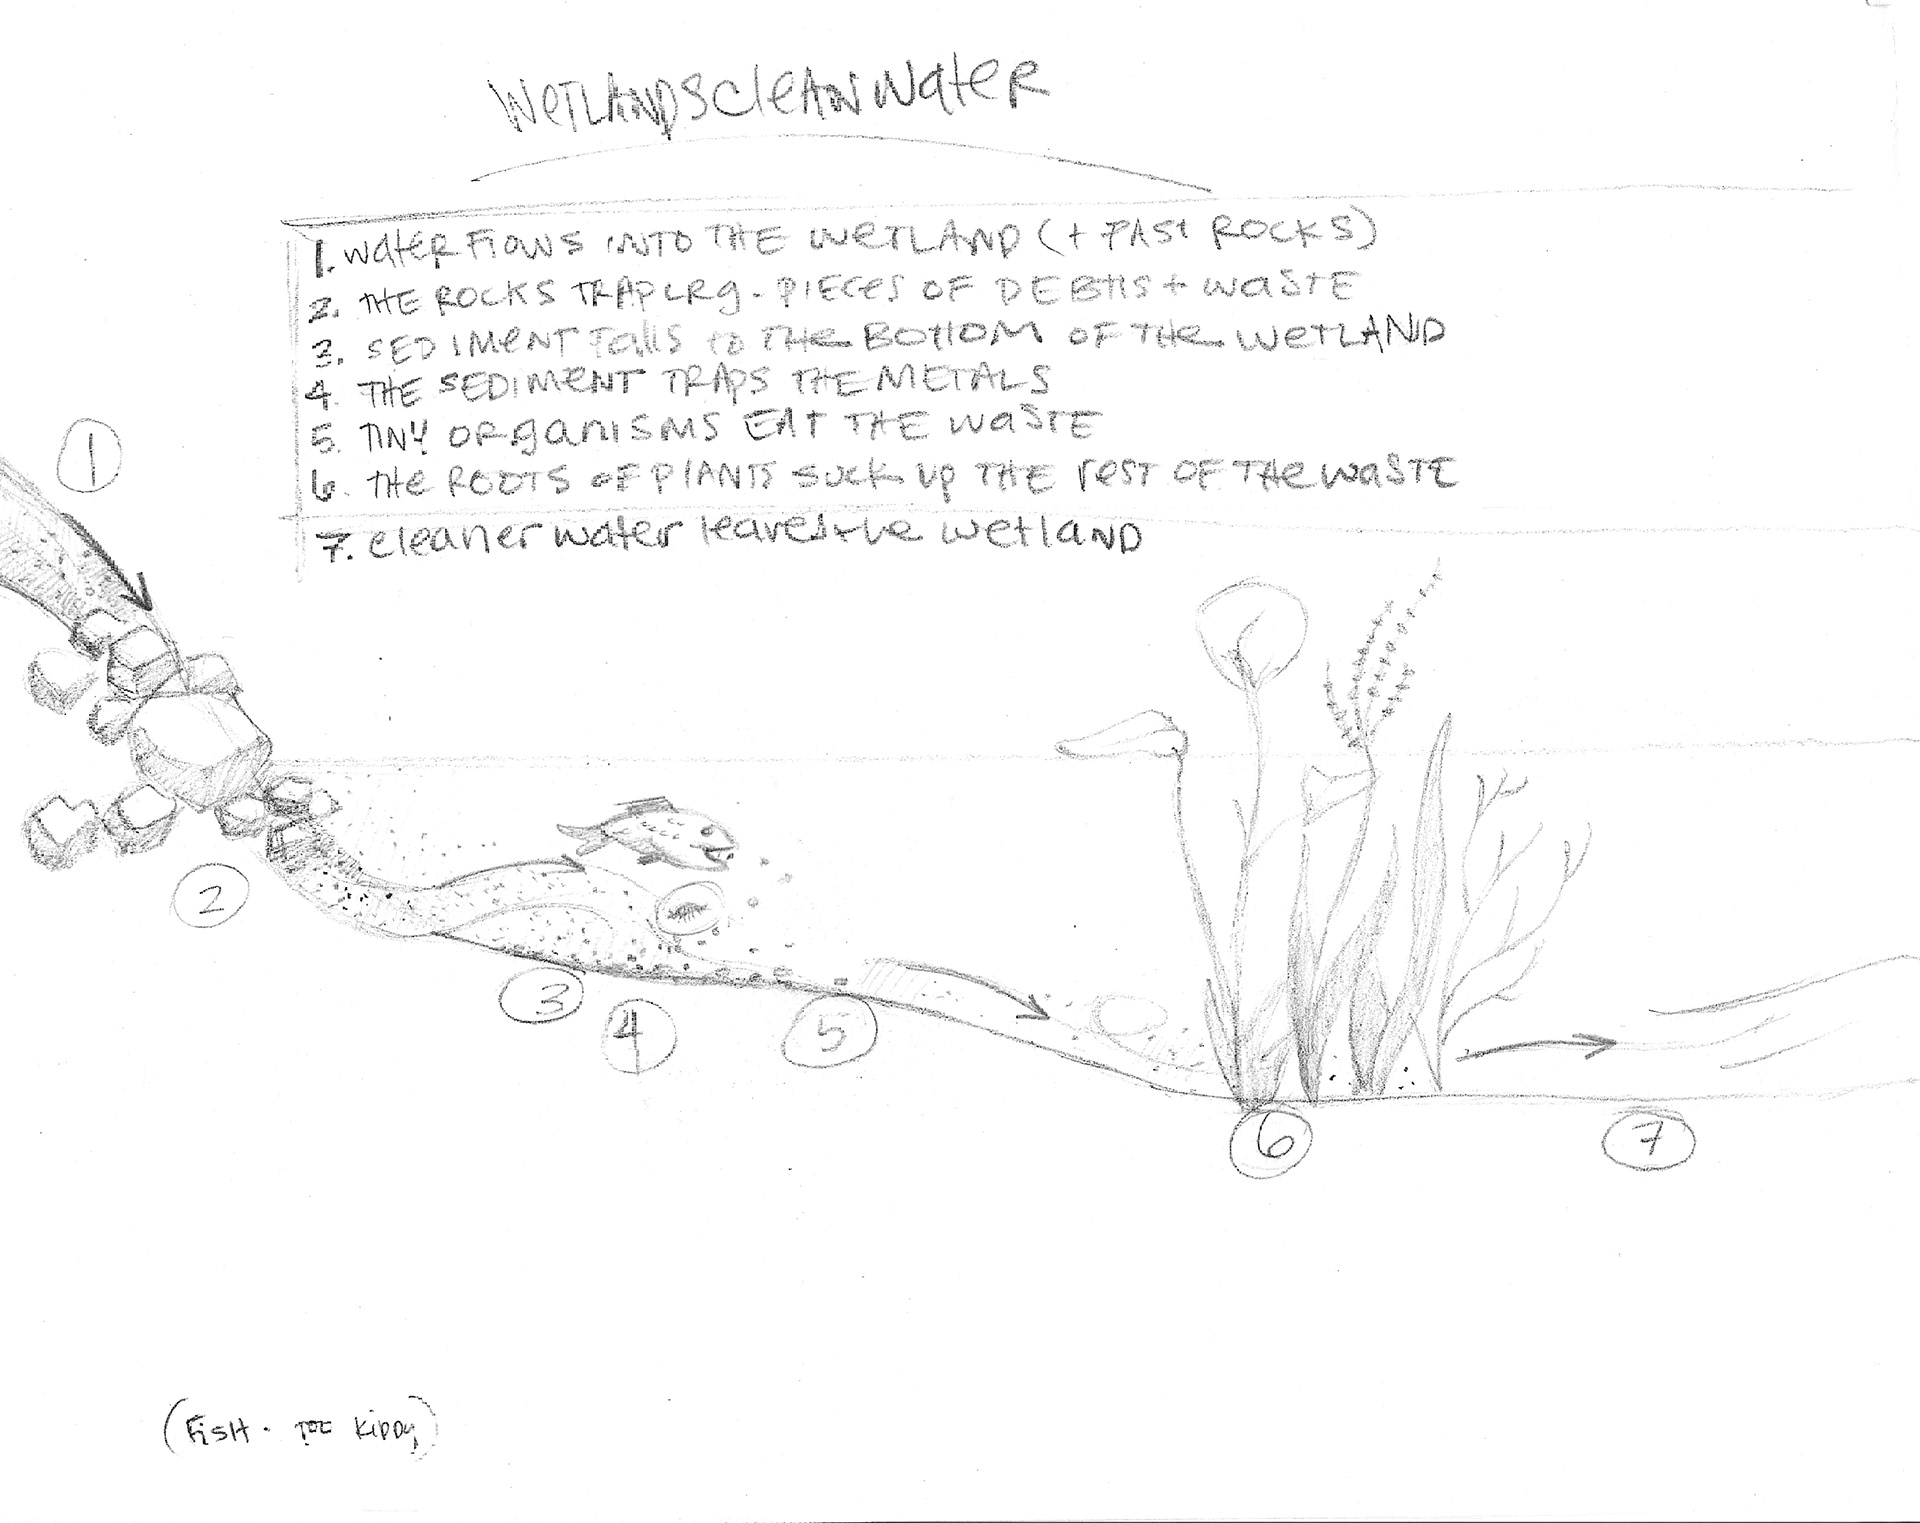 WETLANDS CLEAN WATER
1. WATER FLOWS INTO THE WETLAND (+ PAST ROCKS)
2. THE ROCKS TRAP LRG. PIECES OF DEBRIS + WASTE
3. SEDIMENT FALLS TO THE BOTTOM OF THE WETLAND
4. THE SEDIMENT TRAPS THE METALS
5. TINY ORGANISMS EAT THE WASTE
6. THE ROOTS OF PLANTS SUCK UP THE REST OF THE WASTE
7. cleaner water leaves the wetland
1
2
3
4
5
6
7
(FISH. TOO KIDDY)